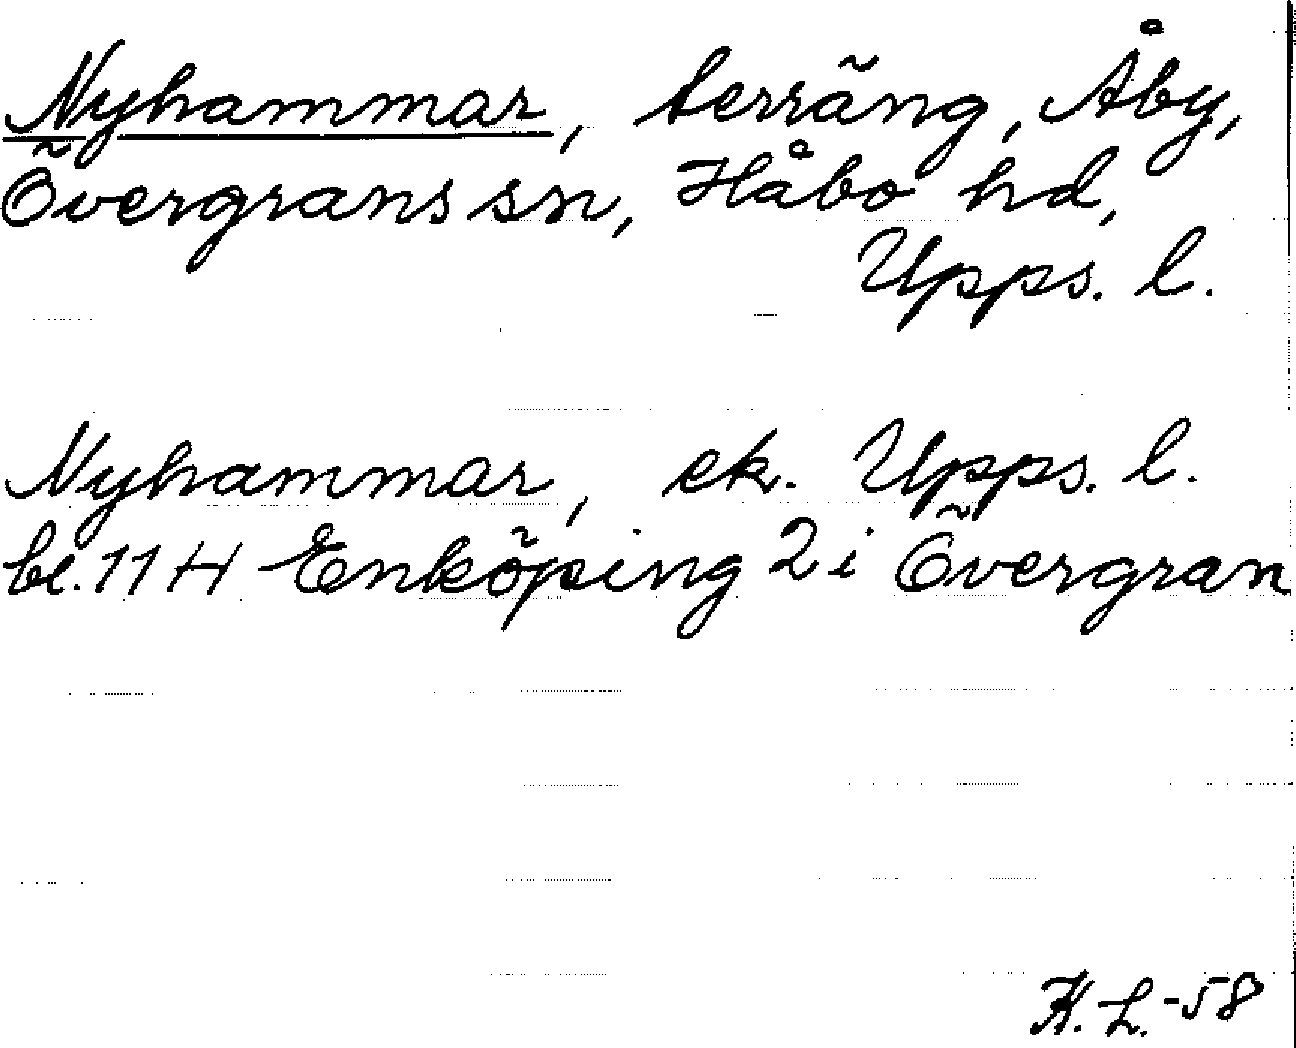 Nyhammar, terräng, Åby,
Övergrans sn, Håbo hd,
Upps. l.
Nyhammar, ek. Upps. l.
bl. 11 H Enköping 2 i Övergran
K. L. -58